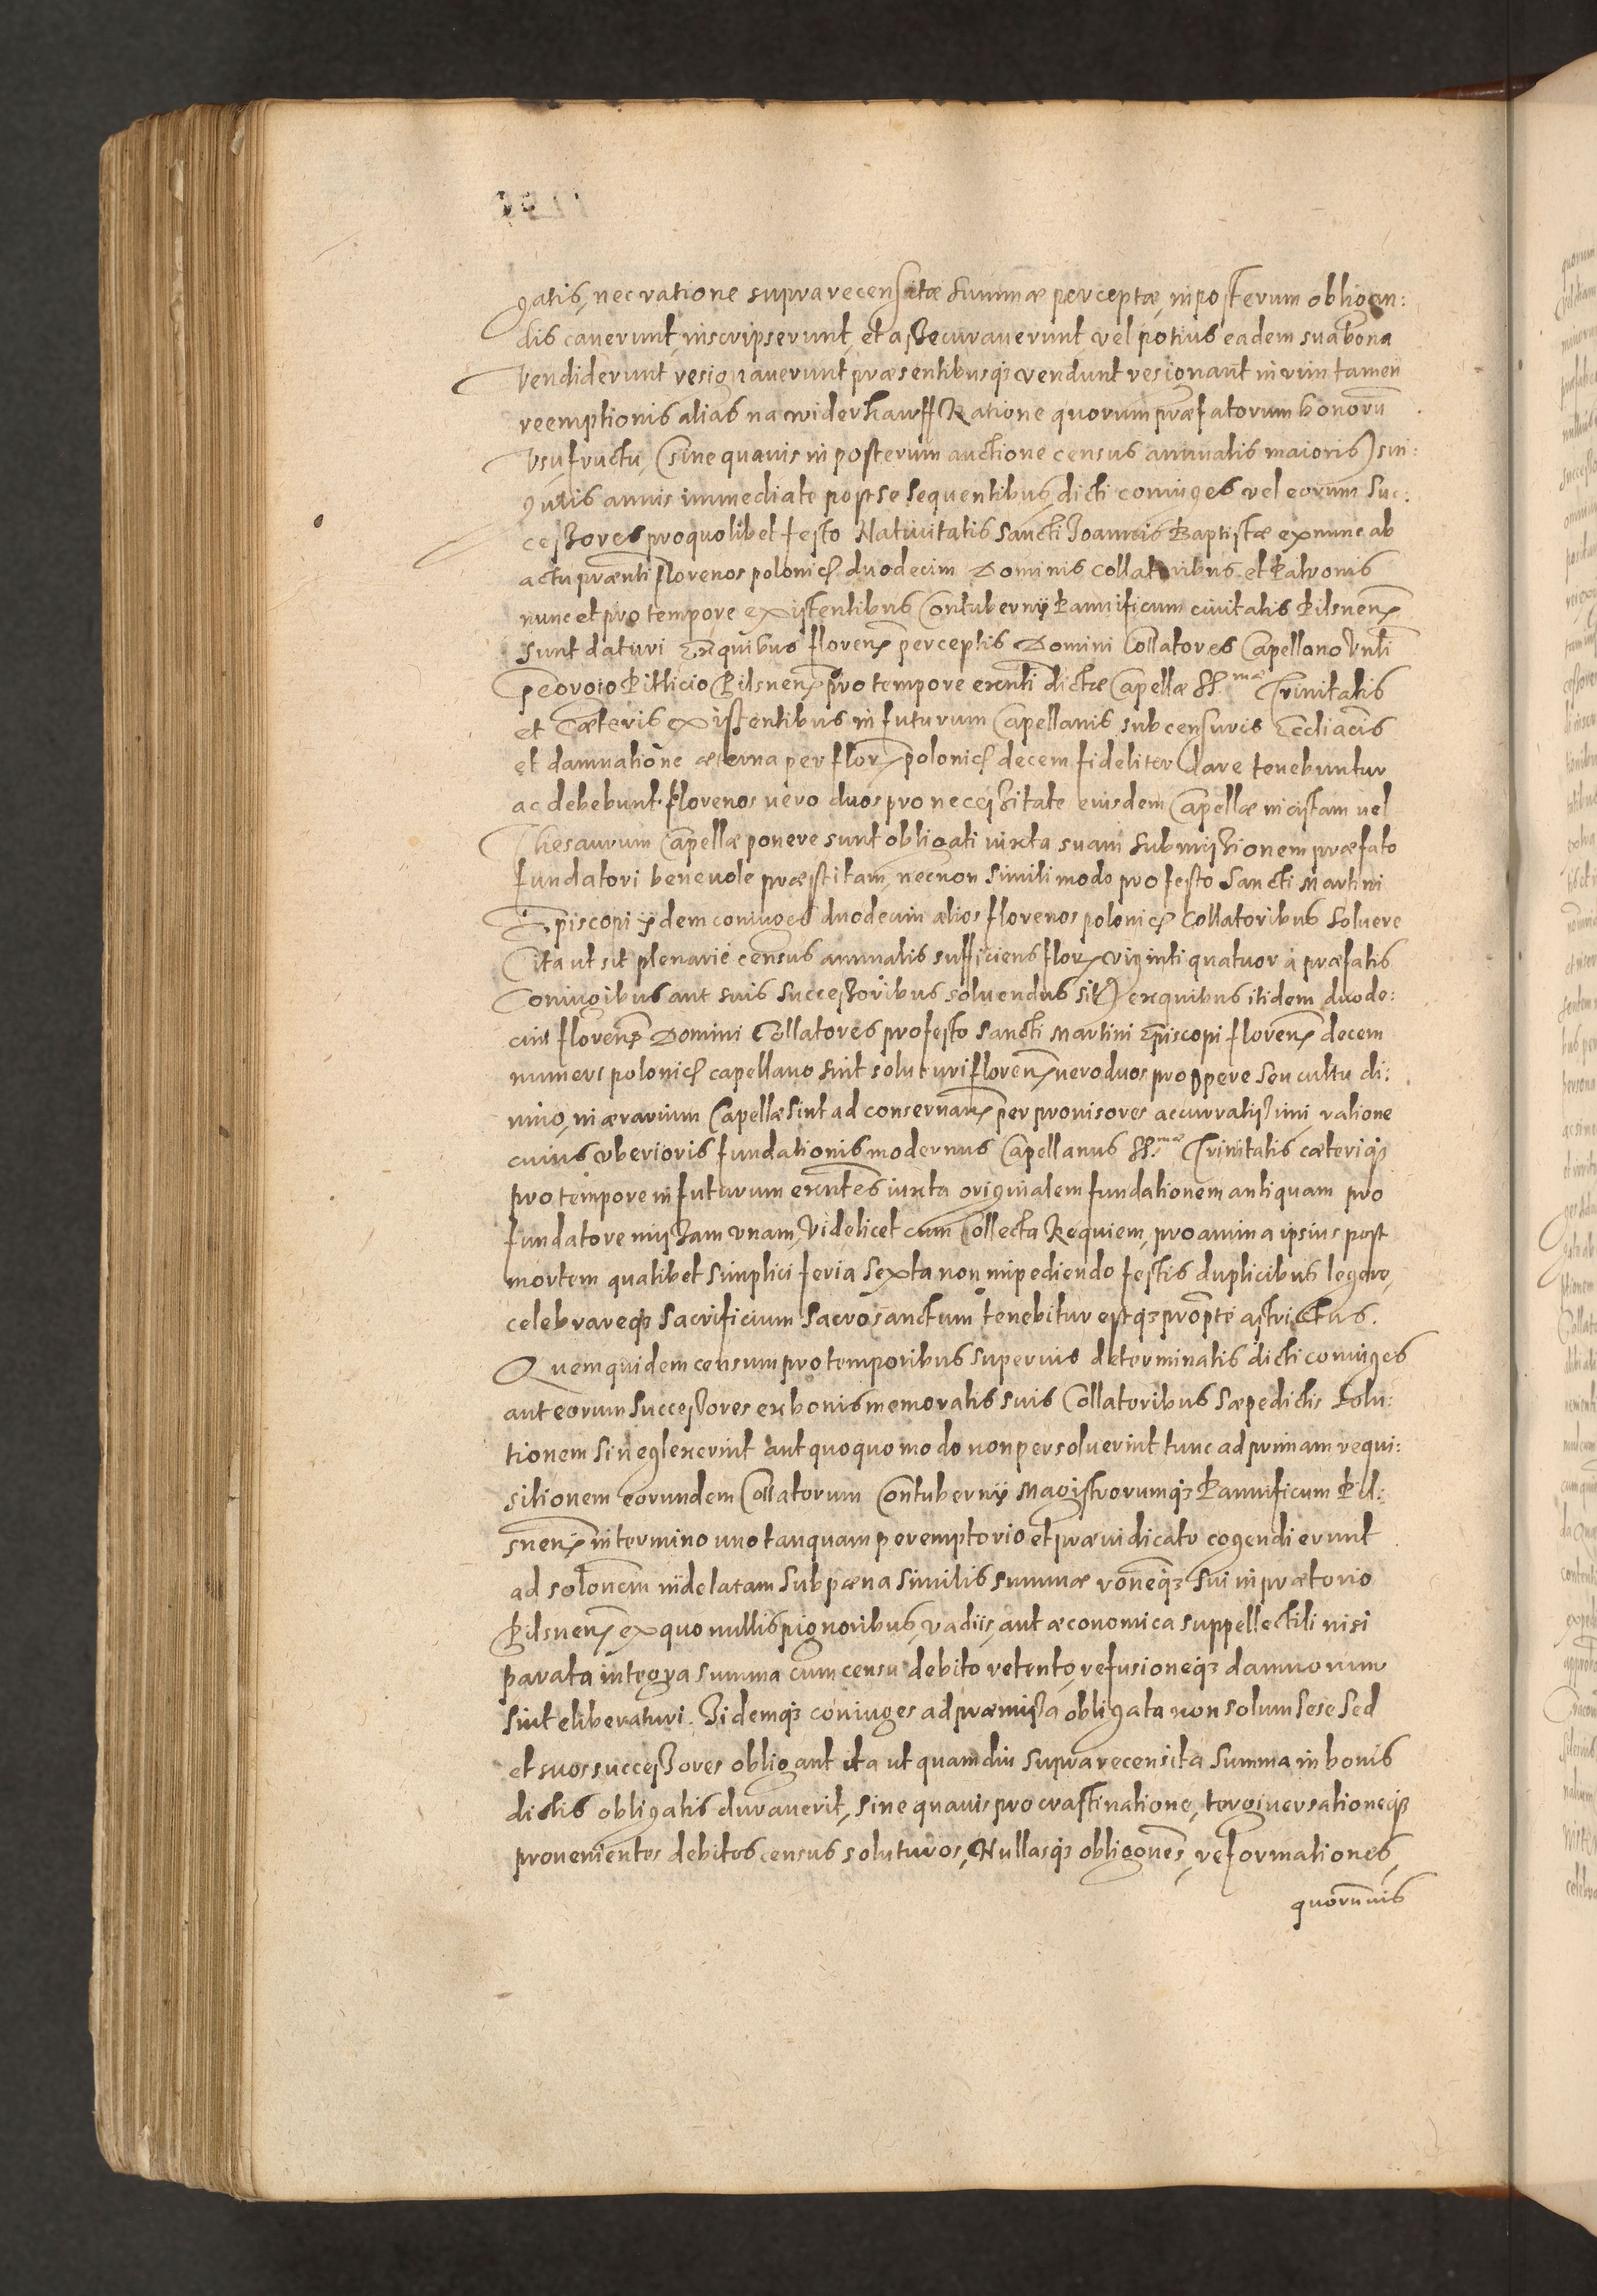 gatis, nec ratione suprarecensitæ summæ perceptæ, inposterum obligan:
dis cauerunt, inscripserunt, et assecurauerunt, vel potius eadem sua bona
vendiderunt resignauerunt præsentibusq3 vendunt resignant in vim tamen
reemptionis alias na widerkauff Ratione quorum præfatorum bonorū
vsufructu, (sine quauis in posterum auctione census annualis maioris) sin:
gulis annis immediate post se sequentibus, dicti coniuges vel eorum suc:
cessores pro quolibet festo Natiuitatis Sancti Joannis Baptistæ ex nunc ab
actu præn̄ti florenos polonical duodecim Dominis Collatoribus et Patronis
nunc et pro tempore existentibus Contubernÿ Pannificum ciuitatis Pilsnen̄
sunt daturi Ex quibus floren̄ perceptis Domini Collatores Capellano
Georgio Pitlicio Pilsnen̄ pro tempore exn̄ti dictæ Capellæ SS.mæ Trinitatis
et Cæteris existentibus in futurum Capellanis sub censuris Ecclīacīs
et damnatione æterna per flor polonical decem fideliter dare tenebuntur
ac debebunt. florenos vero duos pro necessitate eiusdem Capellæ in cistam vel
Thesaurum Capellæ ponere sunt obligati iuxta suam submissionem præfato
fundatori beneuole præstitam, necnon simili modo pro festo Sancti Martini
Episcopi ÿdem coniuges duodecim alios florenos polonical Collatoribus soluere
(ita ut sit plenarie census annualis sufficiens flor viginti quatuor à præfatis
Coniugibus aut suis successoribus soluendus sit) ex quibus itidem duode:
cim floren̄ Domini Collatores pro festo Sancti Martini Episcopi floren̄ decem
numeri polonical capellano sint soluturi floren̄ vero duos pro opere seu cultu di:
uino, in ærarium Capellæ sint ad conseruan̄ per prouisores accurratissimi, ratione
cuius vberioris fundationis modernus Capellanus SS.mæ Trinitatis cæteriq3
pro tempore in futurum exn̄tes iuxta originalem fundationem antiquam pro
fundatore missam vnam, videlicet cum Collecta Requiem, pro amina ipsius post
mortem qualibet simplici feria sexta non impediendo festis duplicibus legere,
celebrareq3 sacrificium sacrosanctum tenebitur estq3 prompte astrictus.
Quem quidem censum pro temporibus superius determinatis dicti coniuges
aut eorum successores ex bonis memoratis suis Collatoribus sæpedictis solu:
tionem si neglexerint aut quoquo modo non persoluerint tunc ad primam requi:
sitionem eorundem Collatorum Contubernÿ Magistrorumq3 Pannificum Pil:
snen̄ in termino uno tanquam peremptorio et præiudicato cogendi erunt
ad solōnem indelatam sub pæna similis summæ rōneq3 sui in prætorio
Pilsnen̄ ex quo nullis pignoribus, vadiis, aut æconomica suppellectili nisi
parata integra summa cum censu debito retento, refusioneq3 damnorum
sint eliberaturi. Iidemq3 coniuges ad præmissa obligata non solum sese sed
et suos successores obligant ita ut quamdiu suprarecensita summa in bonis
dictis obligatis durauerit, sine quauis procrastinatione, tergiuersationeq3
prouenientes debitos census soluturos, Nullasq3 obligōnes, reformationes,
quorumuis